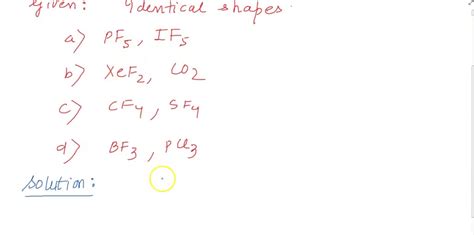 Given: Identical shapes.
a) PF5, IF5
b) XeF2, CO2
c) CF4, SF4
d) BF3, PCl3
Solution: